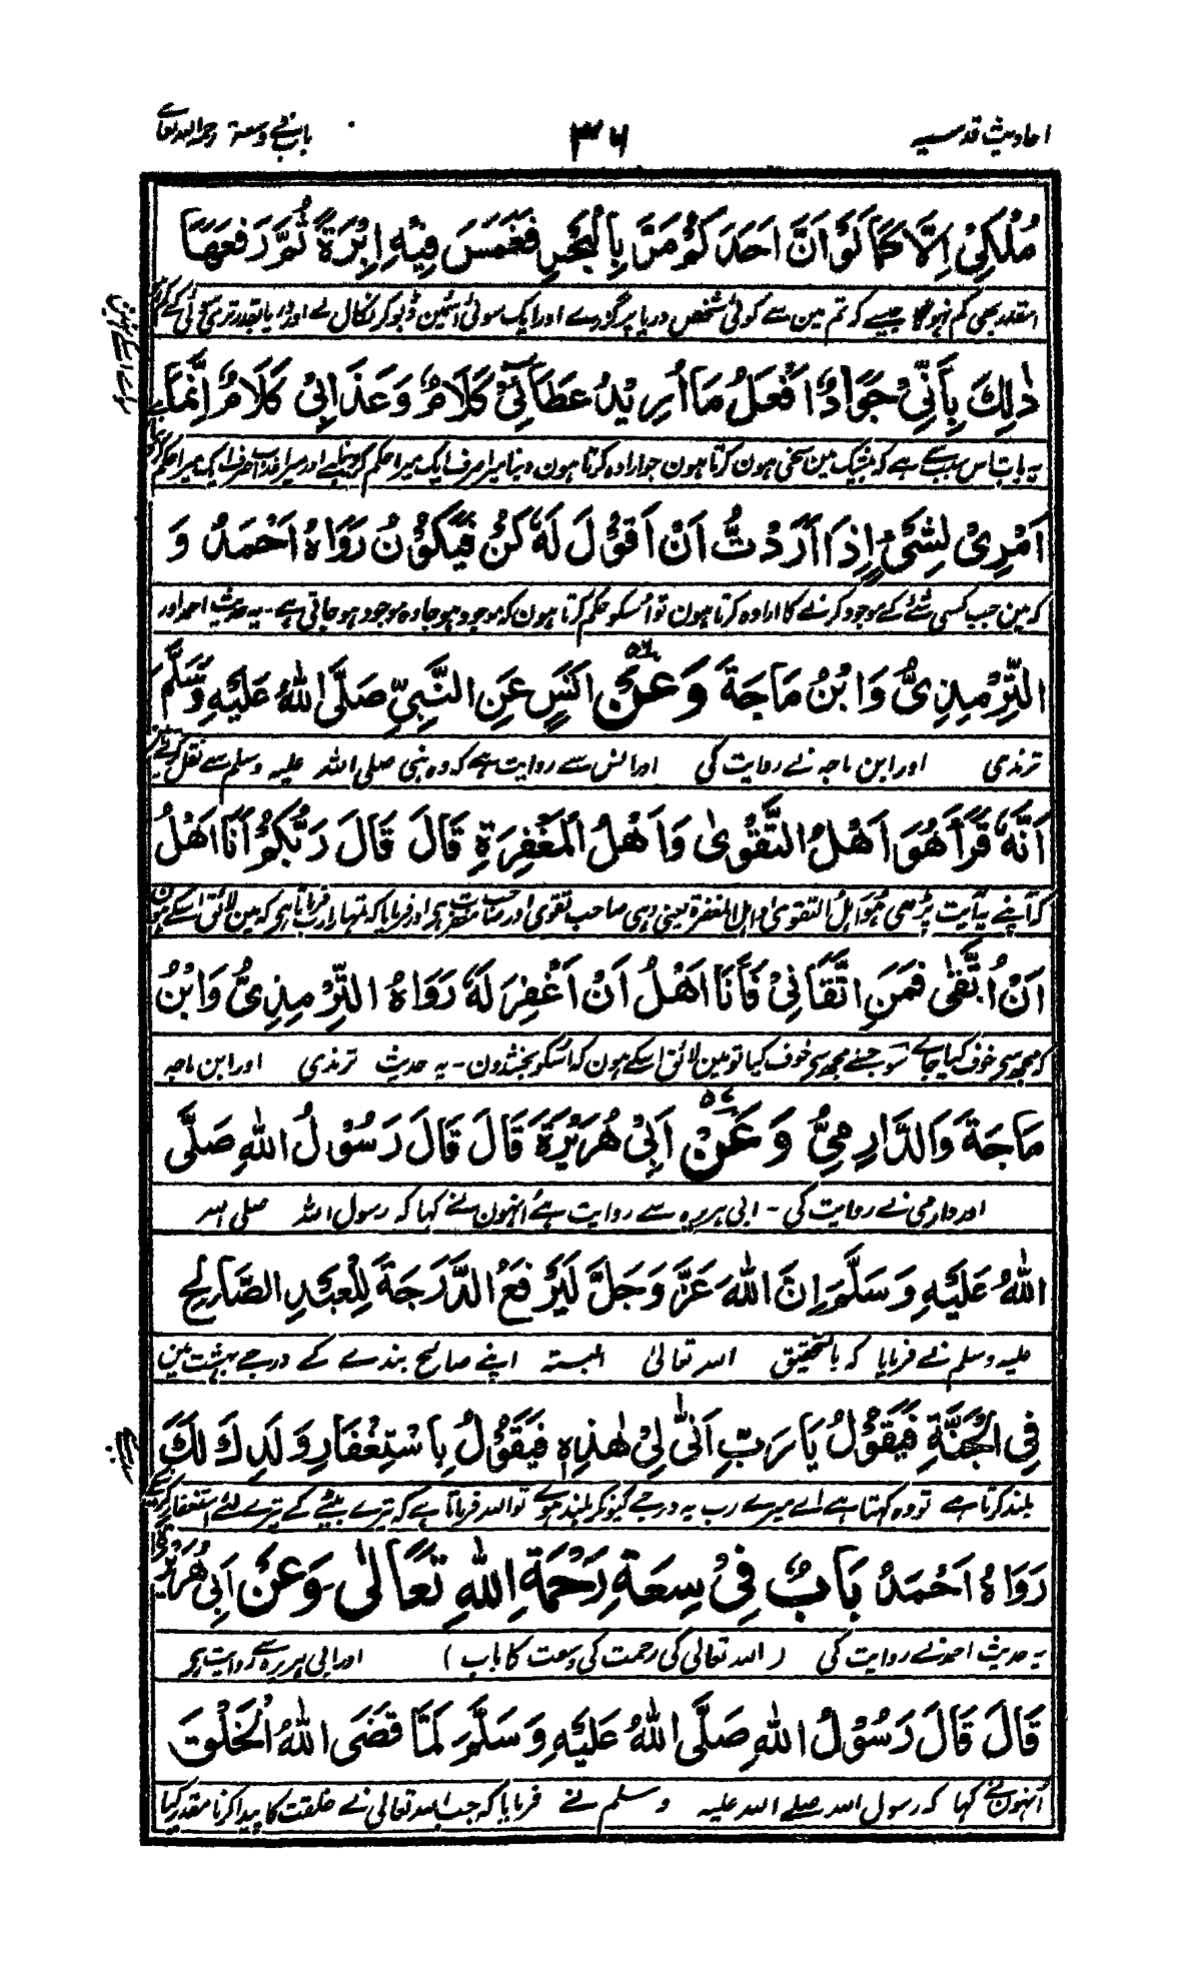 احادیث قدسیہ ۳۶ باب فی وسعۃ رحمۃ اللہ تعالے
مُلْكِيْ اِلَّا كَمَا لَوْ اَنَّ اَحَدَكُمْ مَرَّ بِالْبَحْرِ فَغَمَسَ فِيْهِ اِبْرَةً ثُمَّ رَفَعَهَا
اسقدر بھی کم نہوگا جیسے کہ تم مین سے کوئی شخص دریا پر گزرے اور ایک سوئی اسمین ڈبو کر نکال لے اور
ذٰلِكَ بِاَنِّيْ جَوَادٌ اَفْعَلُ مَا اُرِيْدُ عَطَائِيْ كَلَامٌ وَعَذَابِيْ كَلَامٌ اِنَّمَا
یہ بات اس سبب سے ہے کہ بیشک مین سخی ہون کرتا ہون جو ارادہ کرتا ہون دینا میرا صرف ایک میرا حکم کر دینا ہے اور میرا عذاب صرف ایک میرا حکم
اَمْرِيْ لِشَيْءٍ اِذَا اَرَدْتُّ اَنْ اَقُوْلَ لَهٗ كُنْ فَيَكُوْنُ رَوَاهُ اَحْمَدُ وَ
کہ مین جب کسی شئے کے موجود کرنے کا ارادہ کرتا ہون تو اُسکو حکم کرتا ہون کہ موجود ہو جا وہ موجود ہو جاتی ہے - یہ حدیث احمد اور
التِّرْمِذِيُّ وَابْنُ مَاجَةَ وَعَنْ اَنَسٍ عَنِ النَّبِيِّ صَلَّى اللهُ عَلَيْهِ وَسَلَّمَ
ترمذی اور ابن ماجہ نے روایت کی اور انس سے روایت ہے کہ وہ نبی صلی اللہ علیہ وسلم سے نقل کرتے
اَنَّهٗ قَرَأَ هُوَ اَهْلُ التَّقْوٰى وَاَهْلُ الْمَغْفِرَةِ قَالَ قَالَ رَبُّكُمْ اَنَا اَهْلُ
کہ آپنے یہ آیت پڑھی ہو اہل التقوی و اہل المغفرۃ یعنی وہی صاحب تقوی اور صاحب مغفرت ہے اور فرمایا کہ تمہارا رب فرماتا ہے کہ مین لائق اسکے ہون
اَنْ اُتَّقٰى فَمَنِ اتَّقَانِيْ فَأَنَا اَهْلُ اَنْ اَغْفِرَ لَهٗ رَوَاهُ التِّرْمِذِيُّ وَابْنُ
کہ مجھ سے خوف کیا جاے سو جسنے مجھ سے خوف کیا تو مین لائق اسکے ہون کہ اُسکو بخشدون - یہ حدیث ترمذی اور ابن ماجہ
مَاجَةَ وَالدَّارِمِيُّ وَعَنْ اَبِيْ هُرَيْرَةَ قَالَ قَالَ رَسُوْلُ اللهِ صَلَّى
اور دارمی نے روایت کی - ابی ہریرہ سے روایت ہے اُنہون نے کہا کہ رسول اللہ صلی اللہ
اللهُ عَلَيْهِ وَسَلَّمَ اِنَّ اللهَ عَزَّ وَجَلَّ لَيَرْفَعُ الدَّرَجَةَ لِلْعَبْدِ الصَّالِحِ
علیہ وسلم نے فرمایا کہ بالتحقیق اللہ تعالیٰ البستہ اپنے صالح بندے کے درجے بہشت مین
فِي الْجَنَّةِ فَيَقُوْلُ يَا رَبِّ اَنّٰى لِيْ هٰذِهٖ فَيَقُوْلُ بِاسْتِغْفَارِ وَلَدِكَ لَكَ
بلند کرتا ہے تو وہ کہتا ہے اے میرے رب یہ درجے کیونکر بلند ہوے تو اللہ فرماتا ہے کہ تیرے بیٹے کے تیرے لئے استغفار
رَوَاهُ اَحْمَدُ بَابٌ فِيْ سِعَةِ رَحْمَةِ اللهِ تَعَالٰى وَعَنْ اَبِيْ هُرَيْرَةَ
یہ حدیث احمد نے روایت کی ( اللہ تعالی کی رحمت کی وسعت کا باب ) اور ابی ہریرہ سے روایت ہے
قَالَ قَالَ رَسُوْلُ اللهِ صَلَّى اللهُ عَلَيْهِ وَسَلَّمَ لَمَّا قَضَى اللهُ الْخَلْقَ
اُنہون نے کہا کہ رسول اللہ صلے اللہ علیہ وسلم نے فرمایا کہ جب اللہ تعالی نے خلقت کا پیدا کرنا مقدر کیا